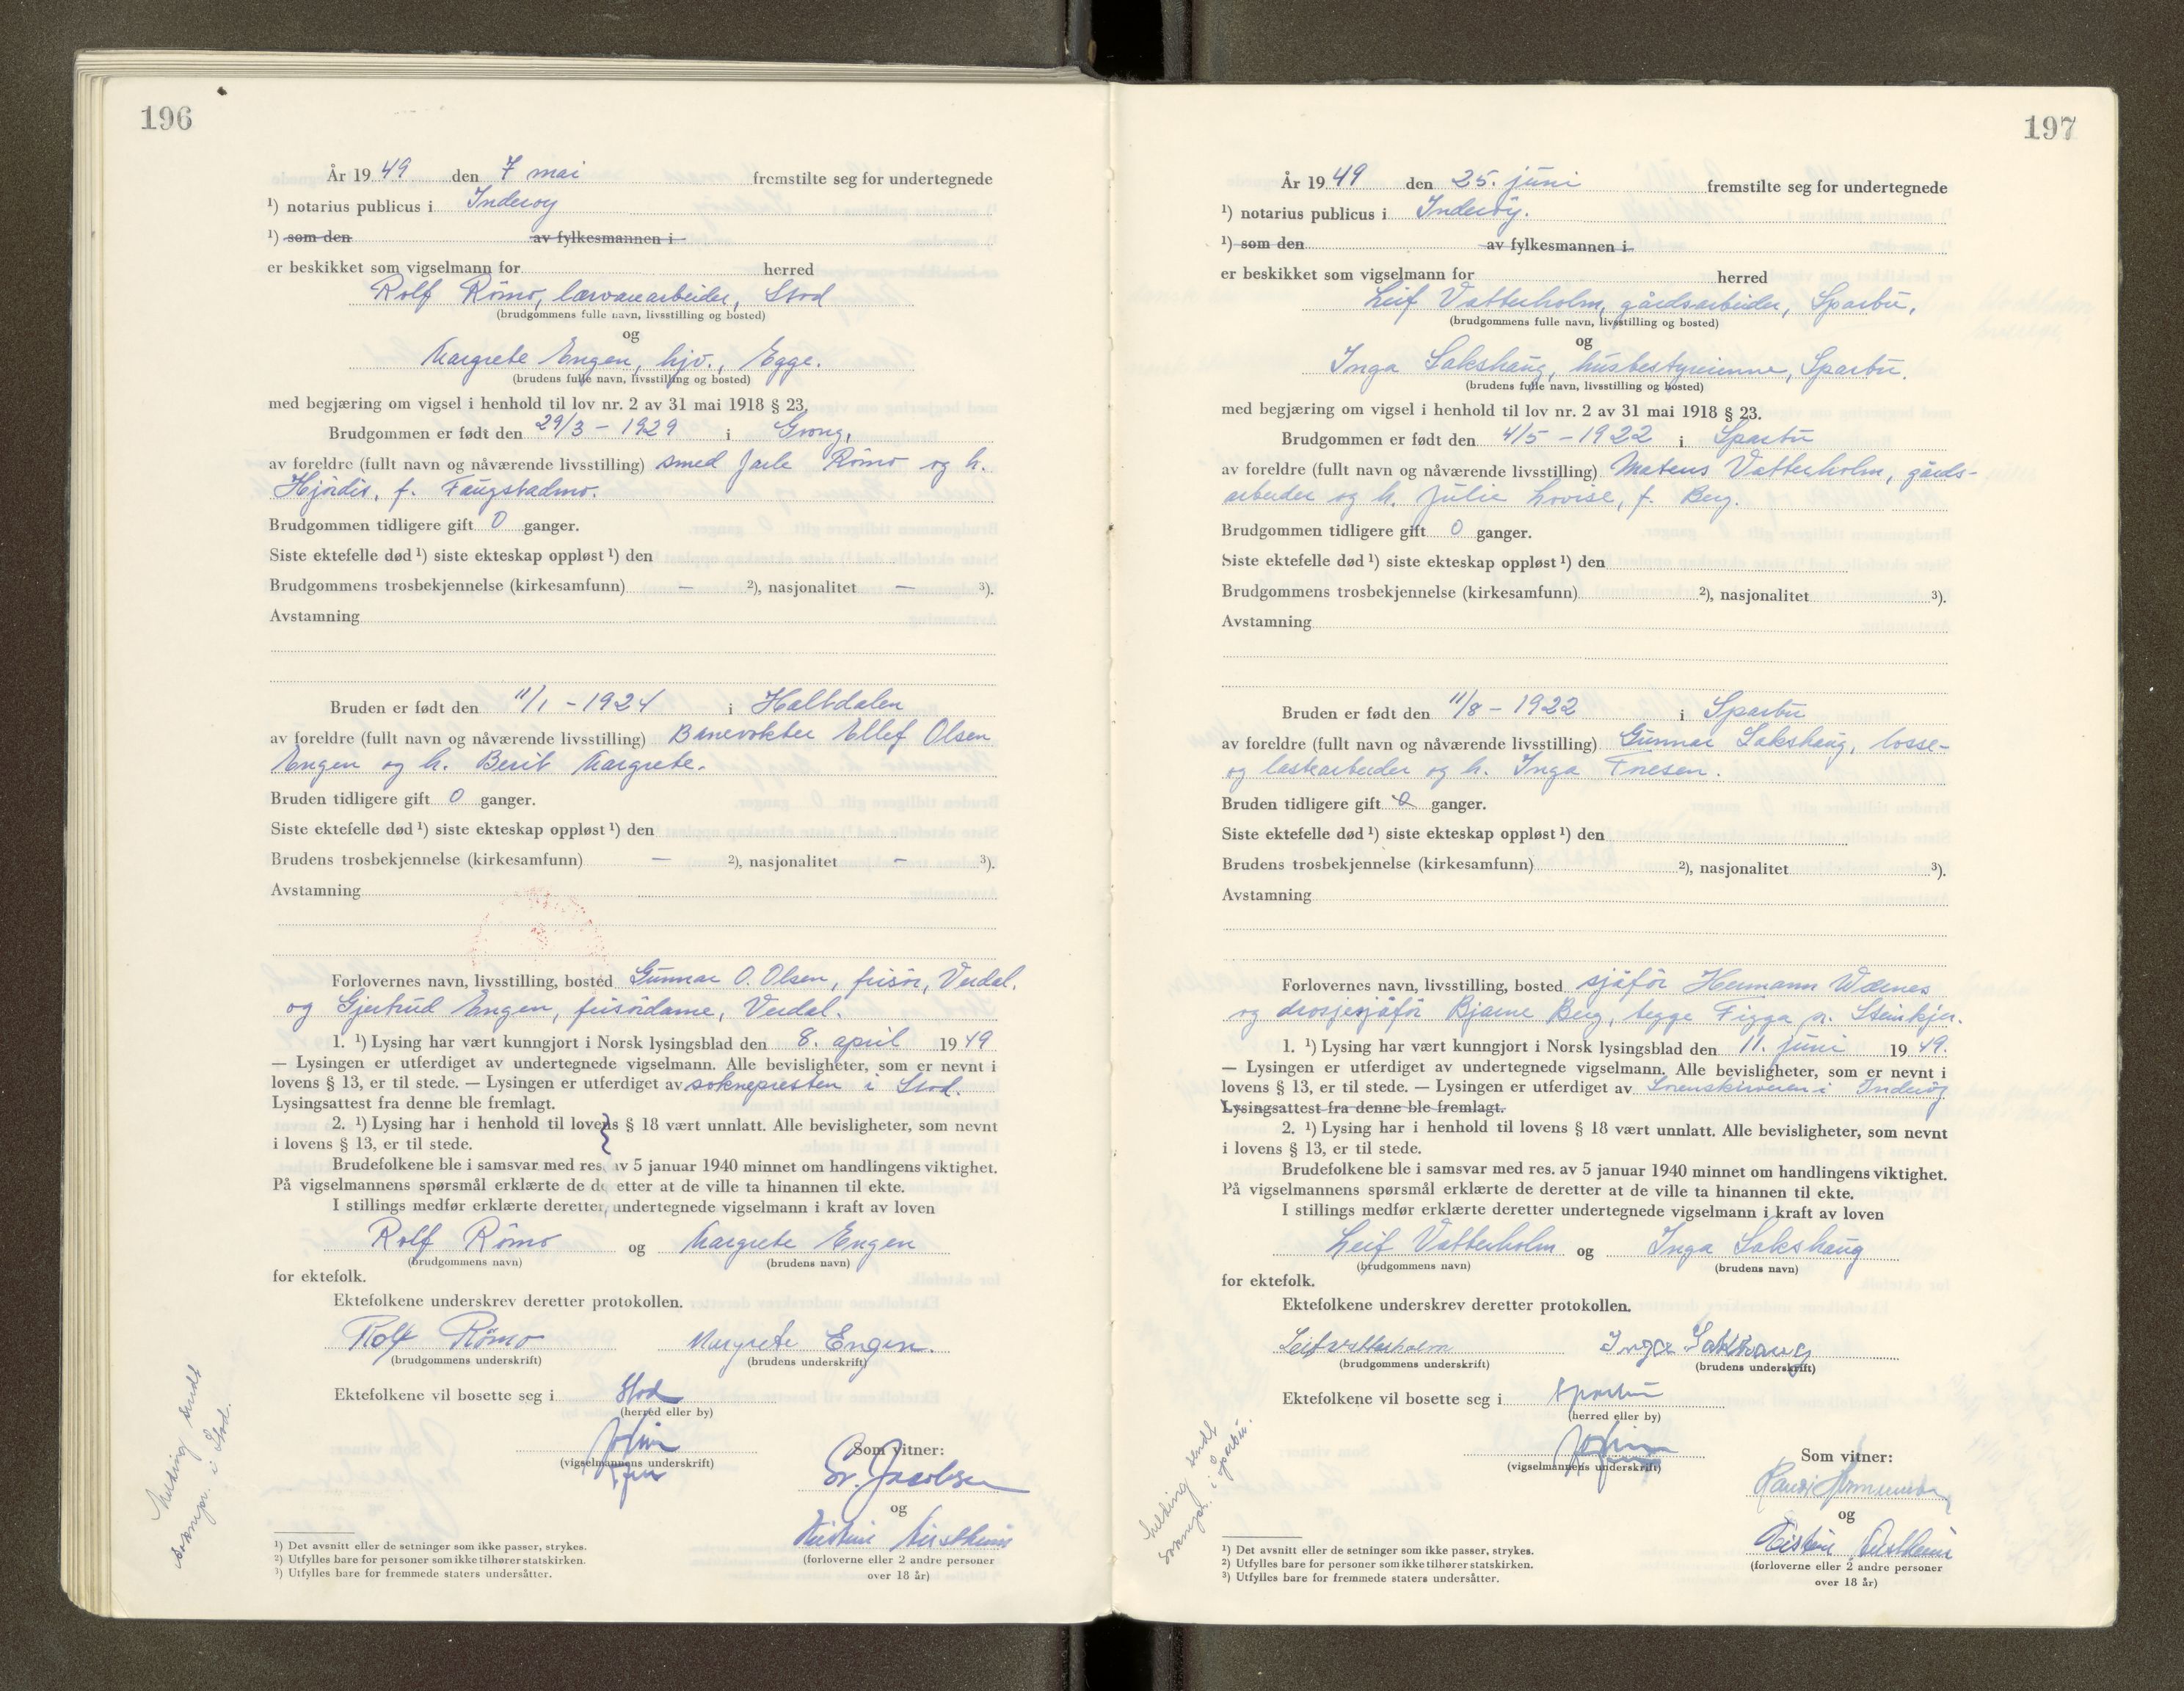 196
År 19 49 den 7 mai fremstilte seg for undertegnede
¹) notarius publicus i Inderøy
¹) som den av fylkesmannen i
er beskikket som vigselmann for herred
Rolf Römo, lærvarearbeider, Stod
(brudgommens fulle navn, livsstilling og bosted)
og
Margrete Engen, hjv., Egge.
(brudens fulle navn, livsstilling og bosted)
med begjæring om vigsel i henhold til lov nr. 2 av 31 mai 1918 § 23.
Brudgommen er født den 29/3 - 1929 i Grong,
av foreldre (fullt navn og nåværende livsstilling) smed Jarle Römo og h.
Hjördis, f. Faugstadmo.
Brudgommen tidligere gift 0 ganger.
Siste ektefelle død ¹) siste ekteskap oppløst ¹) den
Brudgommens trosbekjennelse (kirkesamfunn) — ²), nasjonalitet — ³).
Avstamning
Bruden er født den 11/1 - 1924 i Haltdalen
av foreldre (fullt navn og nåværende livsstilling) Banevokter Ellef Olsen
Engen og h. Berit Margrete.
Bruden tidligere gift 0 ganger.
Siste ektefelle død ¹) siste ekteskap oppløst ¹) den
Brudens trosbekjennelse (kirkesamfunn) — ²), nasjonalitet — ³).
Avstamning
Forlovernes navn, livsstilling, bosted Gunnar O. Olsen, frisör, Verdal.
og Gjertrud Engen, frisördame, Verdal.
1. ¹) Lysing har vært kunngjort i Norsk lysingsblad den 8. april 19 49
— Lysingen er utferdiget av undertegnede vigselmann. Alle bevisligheter, som er nevnt i
lovens § 13, er til stede. — Lysingen er utferdiget av soknepresten i Stod.
Lysingsattest fra denne ble fremlagt.
2. ¹) Lysing har i henhold til lovens § 18 vært unnlatt. Alle bevisligheter, som nevnt
i lovens § 13, er til stede.
Brudefolkene ble i samsvar med res. av 5 januar 1940 minnet om handlingens viktighet.
På vigselmannens spørsmål erklærte de deretter at de ville ta hinannen til ekte.
I stillings medfør erklærte deretter undertegnede vigselmann i kraft av loven
Rolf Römo og Margrete Engen
(brudgommens navn) (brudens navn)
for ektefolk.
Ektefolkene underskrev deretter protokollen.
Rolf Römo Margrete Engen.
(brudgommens underskrift) (brudens underskrift)
Ektefolkene vil bosette seg i Stod
(herred eller by)
Som vitner:
(vigselmannens underskrift)
Jacobsen
og
(forloverne eller 2 andre personer
over 18 år)
Melding sendt
soknepr. i Stod.
¹) Det avsnitt eller de setninger som ikke passer, strykes.
²) Utfylles bare for personer som ikke tilhører statskirken.
³) Utfylles bare for fremmede staters undersåtter.
197
År 19 49 den 25. juni fremstilte seg for undertegnede
¹) notarius publicus i Inderöy.
¹) som den av fylkesmannen i
er beskikket som vigselmann for herred
Leif Vatterholm, gårdsarbeider, Sparbu,
(brudgommens fulle navn, livsstilling og bosted)
og
Inga Sakshaug, husbestyrerinne, Sparbu.
(brudens fulle navn, livsstilling og bosted)
med begjæring om vigsel i henhold til lov nr. 2 av 31 mai 1918 § 23.
Brudgommen er født den 4/5 - 1922 i Sparbu
av foreldre (fullt navn og nåværende livsstilling) Mateus Vatterholm, gårds-
arbeider og h. Julie Lovise, f. Berg.
Brudgommen tidligere gift 0 ganger.
Siste ektefelle død ¹) siste ekteskap oppløst ¹) den
Brudgommens trosbekjennelse (kirkesamfunn) ²), nasjonalitet ³).
Avstamning
Bruden er født den 11/8 - 1922 i Sparbu
av foreldre (fullt navn og nåværende livsstilling) Gunnar Sakshaug, losse-
og lastearbeider og h. Inga Friesen.
Bruden tidligere gift 0 ganger.
Siste ektefelle død ¹) siste ekteskap oppløst ¹) den
Brudens trosbekjennelse (kirkesamfunn) ²), nasjonalitet ³).
Avstamning
Forlovernes navn, livsstilling, bosted sjåför Hermann Wænes
og drosjesjåför Bjarne Berg, begge Figga pr. Steinkjer.
1. ¹) Lysing har vært kunngjort i Norsk lysingsblad den 11. juni 19 49.
— Lysingen er utferdiget av undertegnede vigselmann. Alle bevisligheter, som er nevnt i
lovens § 13, er til stede. — Lysingen er utferdiget av Sorenskriveren i Inderöy
Lysingsattest fra denne ble fremlagt.
2. ¹) Lysing har i henhold til lovens § 18 vært unnlatt. Alle bevisligheter, som nevnt
i lovens § 13, er til stede.
Brudefolkene ble i samsvar med res. av 5 januar 1940 minnet om handlingens viktighet.
På vigselmannens spørsmål erklærte de deretter at de ville ta hinannen til ekte.
I stillings medfør erklærte deretter undertegnede vigselmann i kraft av loven
Leif Vatterholm og Inga Sakshaug
(brudgommens navn) (brudens navn)
for ektefolk.
Ektefolkene underskrev deretter protokollen.
Leif Vatterholm Inga Sakshaug
(brudgommens underskrift) (brudens underskrift)
Ektefolkene vil bosette seg i Sparbu
(herred eller by)
Som vitner:
(vigselmannens underskrift)
og
(forloverne eller 2 andre personer
over 18 år)
Melding sendt
soknepr. i Sparbu.
¹) Det avsnitt eller de setninger som ikke passer, strykes.
²) Utfylles bare for personer som ikke tilhører statskirken.
³) Utfylles bare for fremmede staters undersåtter.